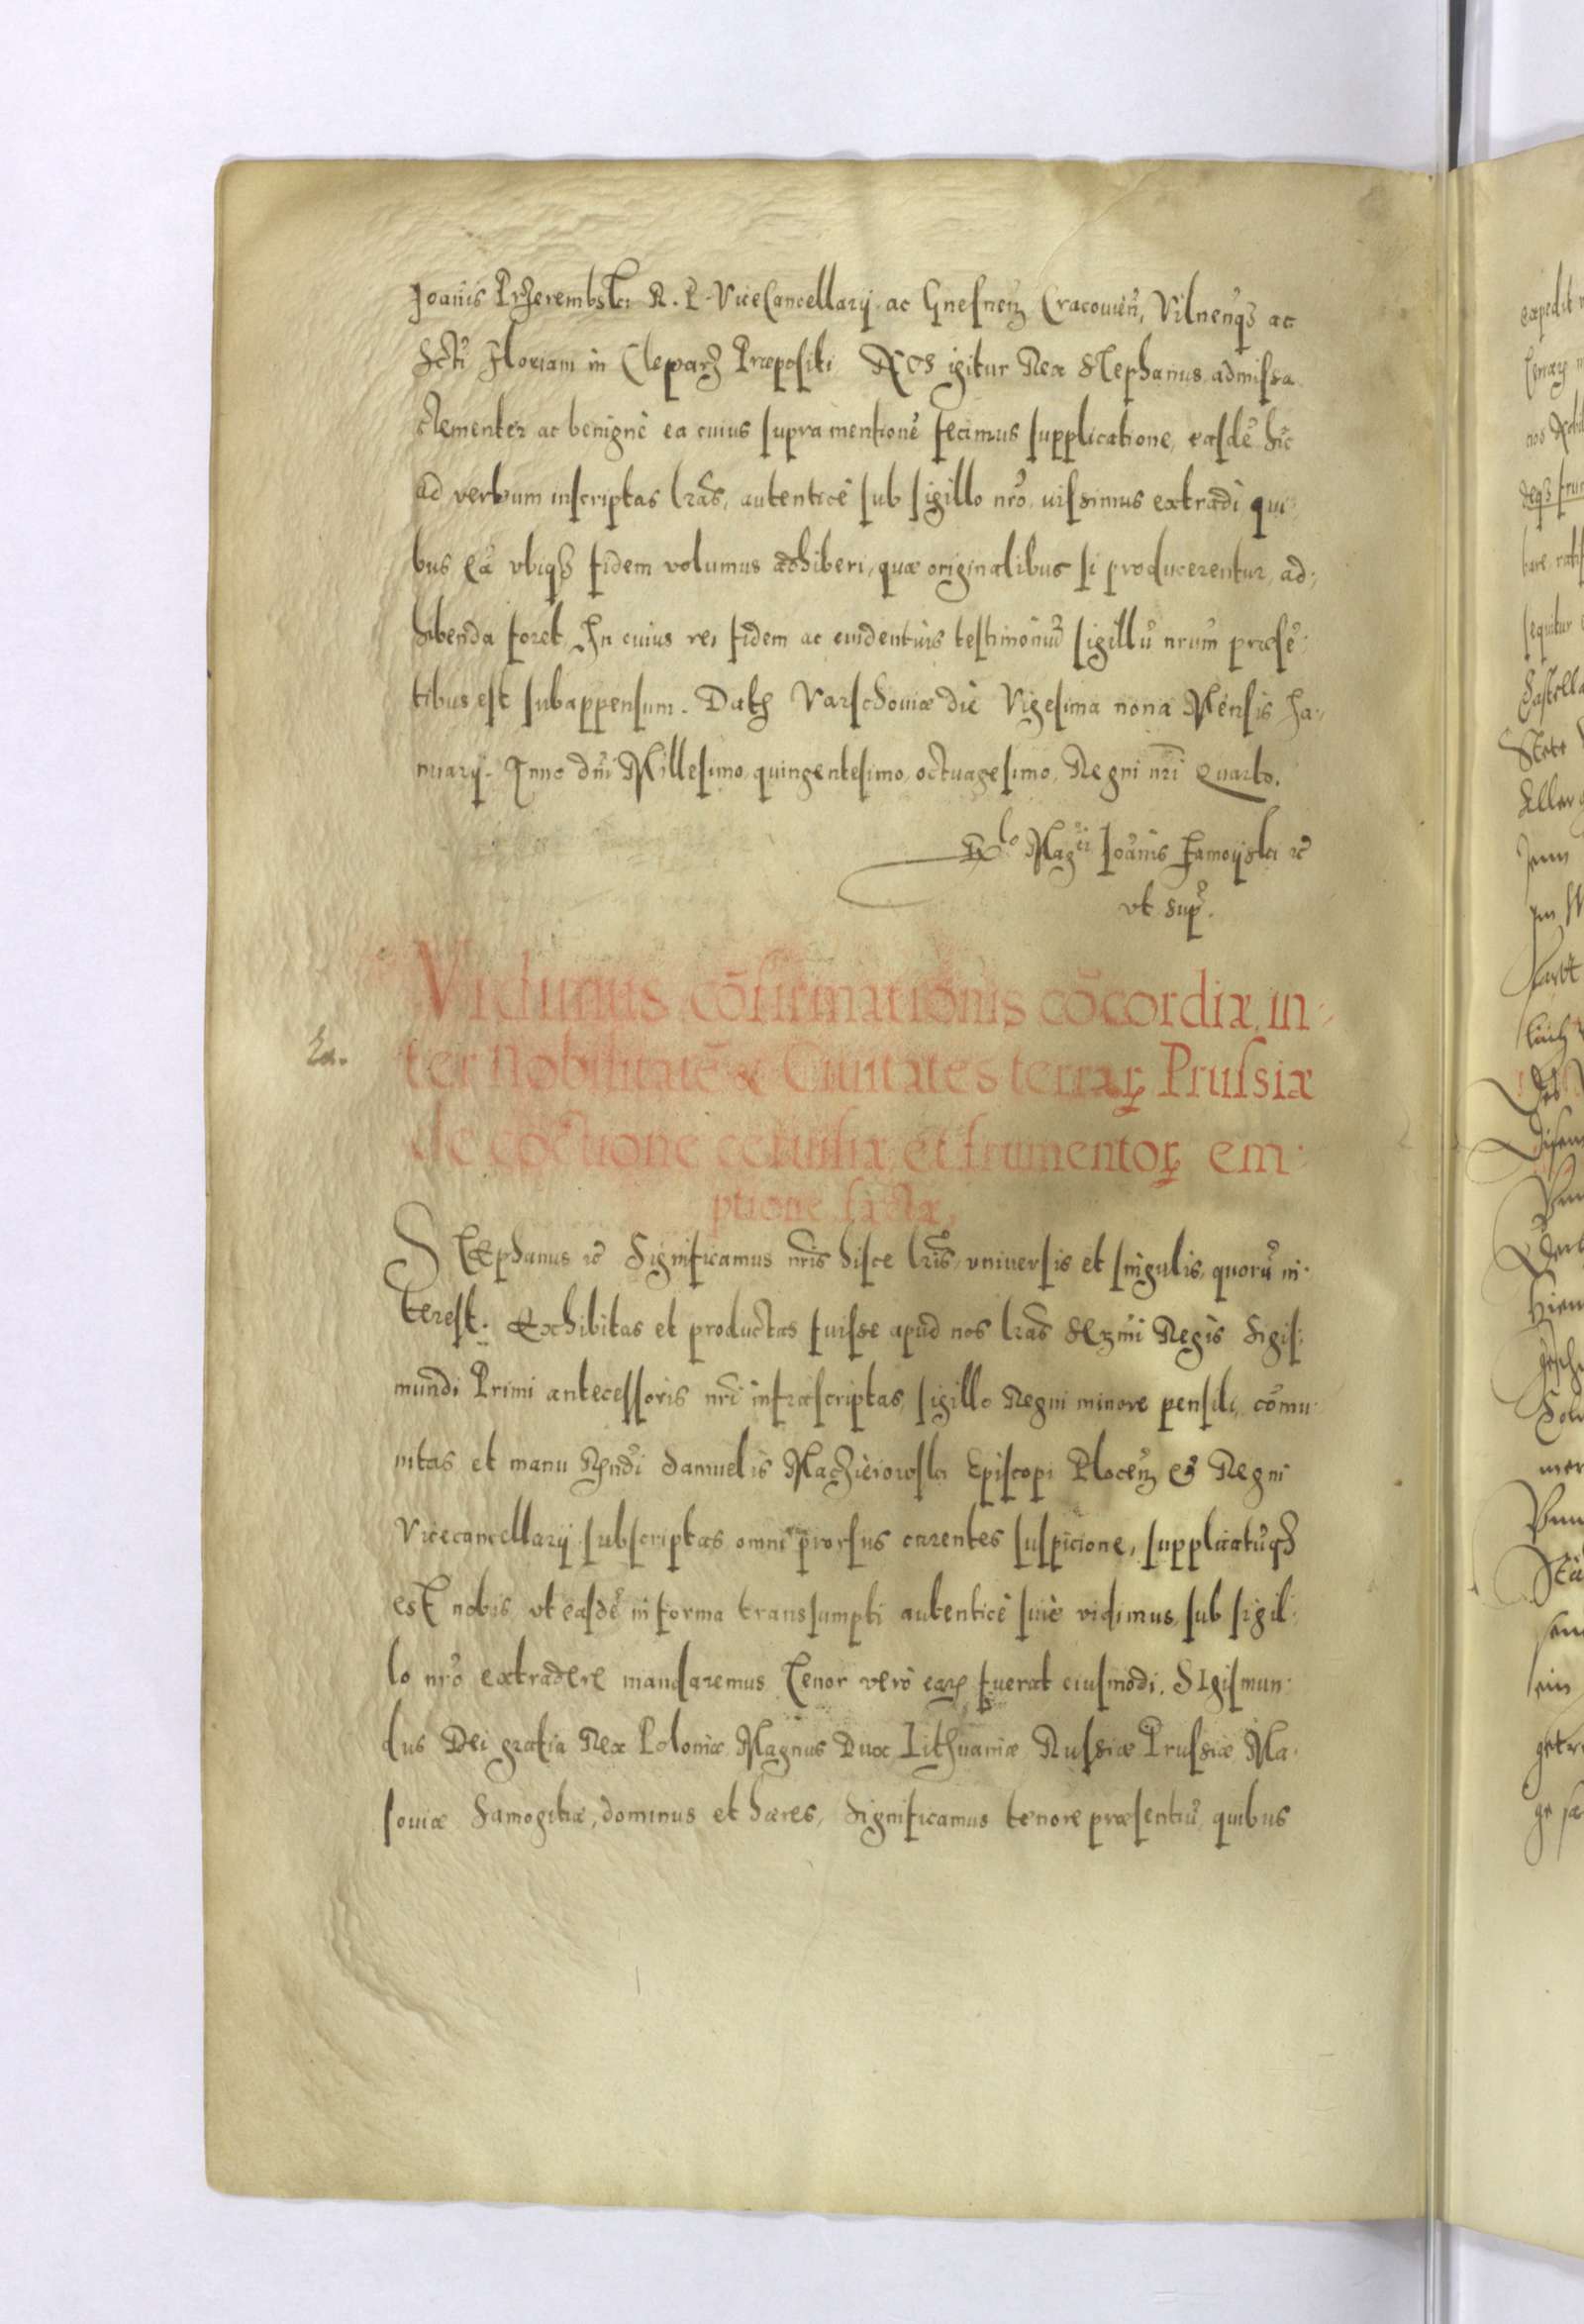 Joānis Przerembski R. P. ViceCancellarij ac Gnesneñ Cracovieñ, Vilneñq₃ ac
Scti Floriani in Cleparz Præpositi Nos igitur Rex Stephanus admissa
clementer ac benignè ea cuius supra mentionē fecimus supplicatione, easdē hic
ad verbum inscriptas lrās, autenticè sub sigillo nrō, iussimus extradi qui-
bus eā vbiq₃ fidem volumus adhiberi, quæ originalibus si producerentur, ad-
hibenda foret, In cuius rei fidem ac euidentius testimoniū sigillū nrum præsē-
tibus est subappensum. Datꝭ Varschouiæ die Vigesima nona Mensis Ja-
nuarij. Anno dñi Millesimo, quingentesimo, octuagesimo, Regni nrī Quarto.
Rlo Magci Joānis Zamoijski &c
vt sup.
Vidimus cōfirmationis cōcordiæ, in-
Ea.
ter Nobilitatē & Ciuitates terrarꝝ Prussiæ
de coctione ceruisiæ, et frumentorꝝ em-
ptione factæ,
STephanus &c Significamus nrīs hisce lrīs, vniuersis et singulis, quorū in-
terest. Exhibitas et productas fuisse apud nos lrās Serꝫmi Regis Sigis-
mundi Primi antecessoris nrī infrascriptas, sigillo Regni minore pensili, cōmu-
nitas et manu Rṇdi Samuelis Maczieiowski Episcopi Ploceñ & Regni
Vicecancellarij subscriptas omni prorsus carentes suspicione, supplicatūq₃
est nobis vt easdē in forma transsumpti autenticè siue vidimus, sub sigil-
lo nrō extradere mandaremus. Tenor verò earꝝ fuerat eiusmodi. SIgismun-
dus Dei gratia Rex Poloniæ, Magnus Dux Lithuaniæ, Russiæ Prussiæ Ma-
souiæ Samogitiæ, dominus et hæres, Significamus tenore præsentiū, quibus